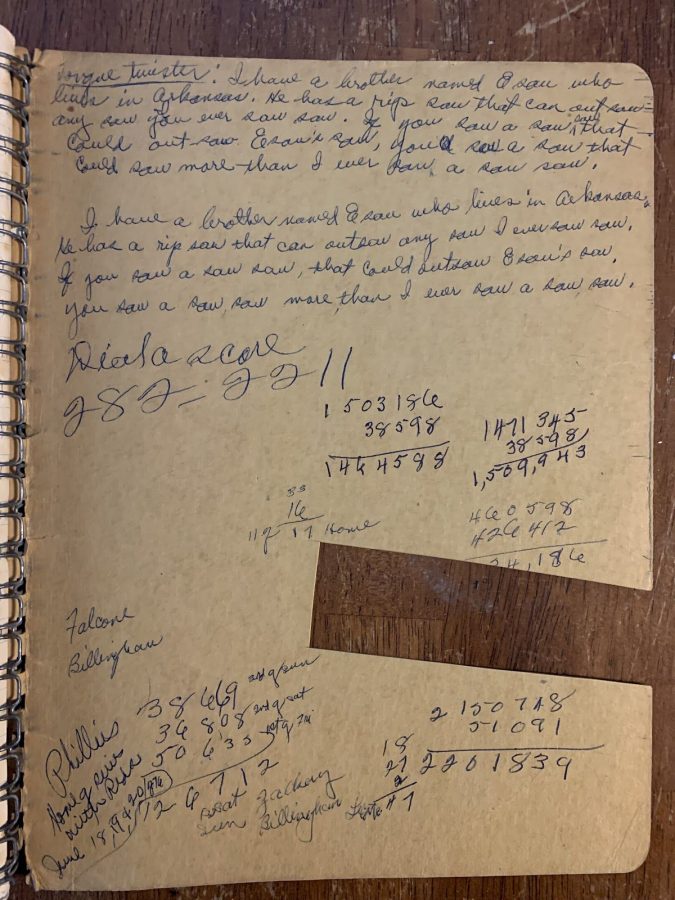 Tongue twister: I have a brother named Esau who
lives in Arkansas. He has a rip saw that can out saw
any saw you ever saw saw. If you saw a saw saw that
could out-saw Esau's saw, you'd saw a saw that
could saw more than I ever saw, a saw saw.
I have a brother named Esau who lives in Arkansas.
He has a rip saw that can outsaw any saw I ever saw saw.
If you saw a saw saw, that could outsaw Esau's saw,
you saw a saw, saw more than I ever saw a saw, saw.
score
282 - 2211
1 503186
38598
1464588
1471345
38598
1,509,943
33
16
11 g 17 Home
460598
426412
34,186
Falcone
Billingham
Phillies
38669 3rd g sun
36808 2nd g sat
50635 1st g Fri
126712
Home g
with Reds
June 18, 19 & 20
Sat Zachary
Sun Billingham
2150748
51091
2201839
18
27
2
47